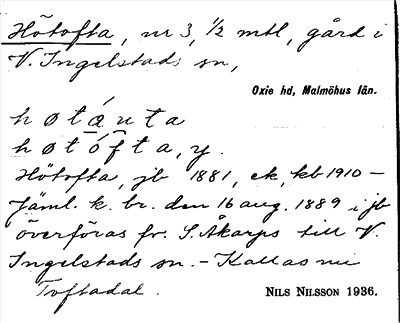 Hötofta, nr 3, 1/2 mtl, gård i
V. Ingelstads sn,
Oxie hd, Malmöhus län.
høtáuta
høtófta, y.
Hötofta, jb 1881, ek, kb 1910 –
Jäml. k. br. den 16 aug. 1889 i jb
överföras fr. S. Åkarps till V.
Ingelstads sn. – Kallas nu
Toftadal.
NILS NILSSON 1936.